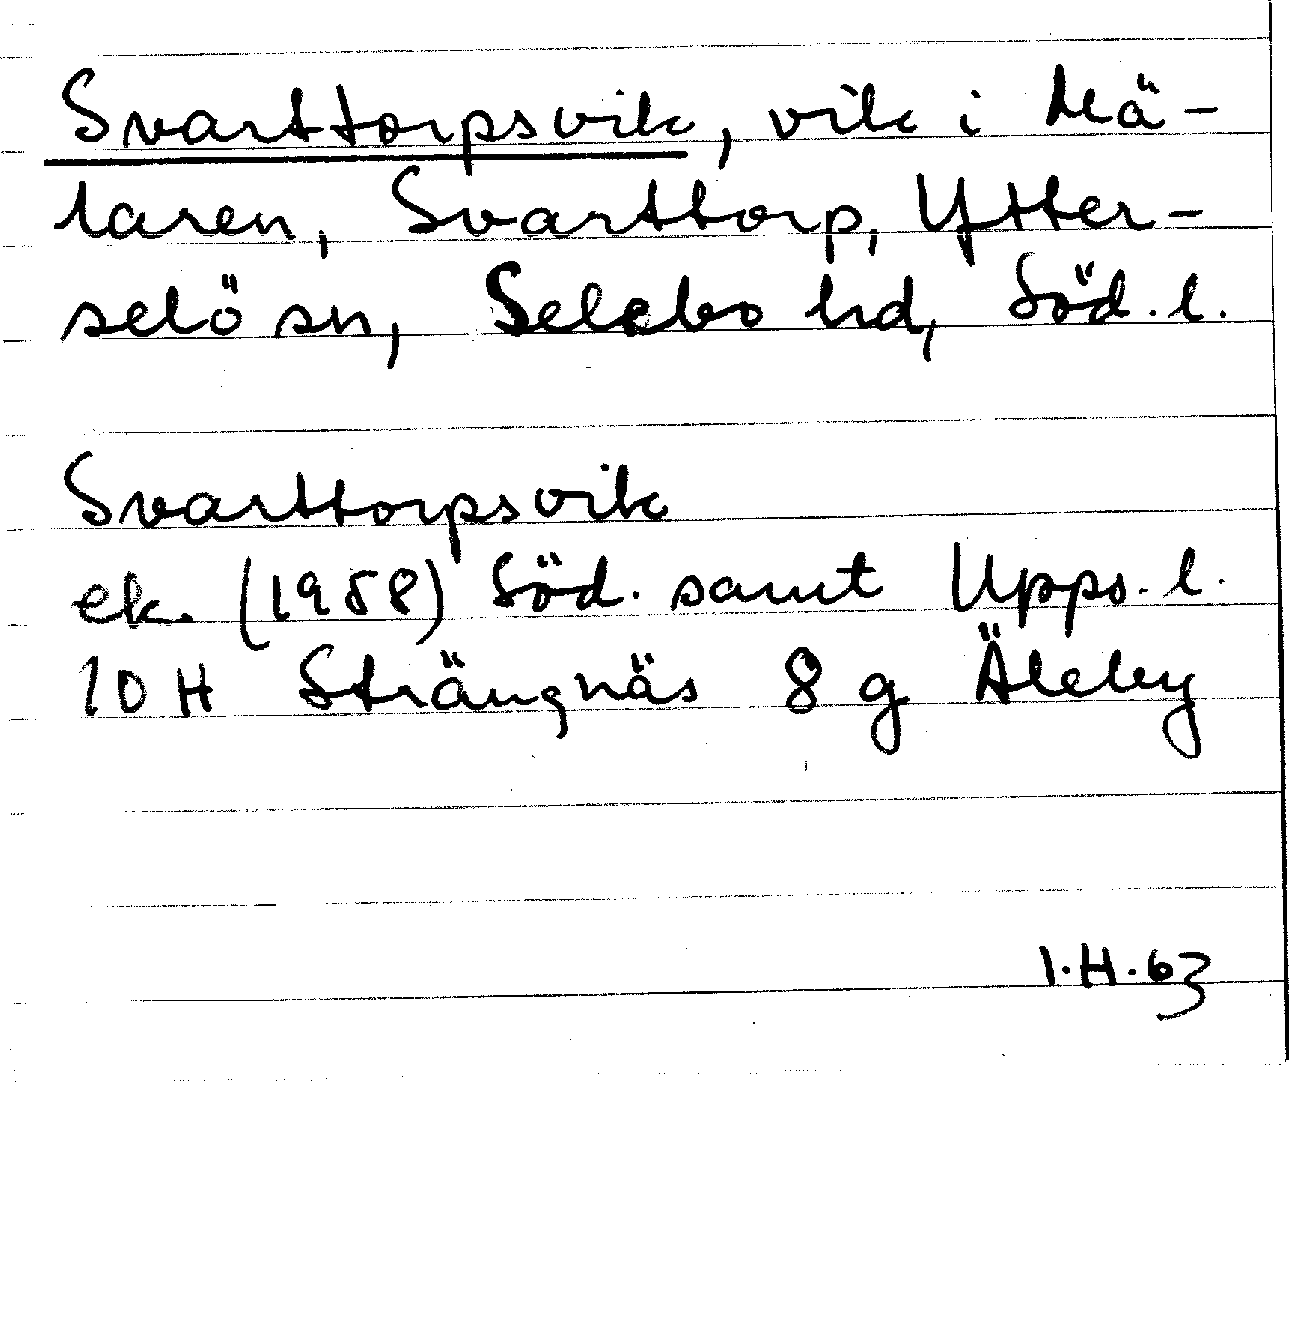 Svarttorpsvik, vik i Mä-
laren, Svarttorp, Ytter-
selö sn, Selebo hd, Söd. l.
Svarttorpsvik
ek. (1958) Söd. samt Upps. l.
10 H Strängnäs 8 g Äleby
I.H.63